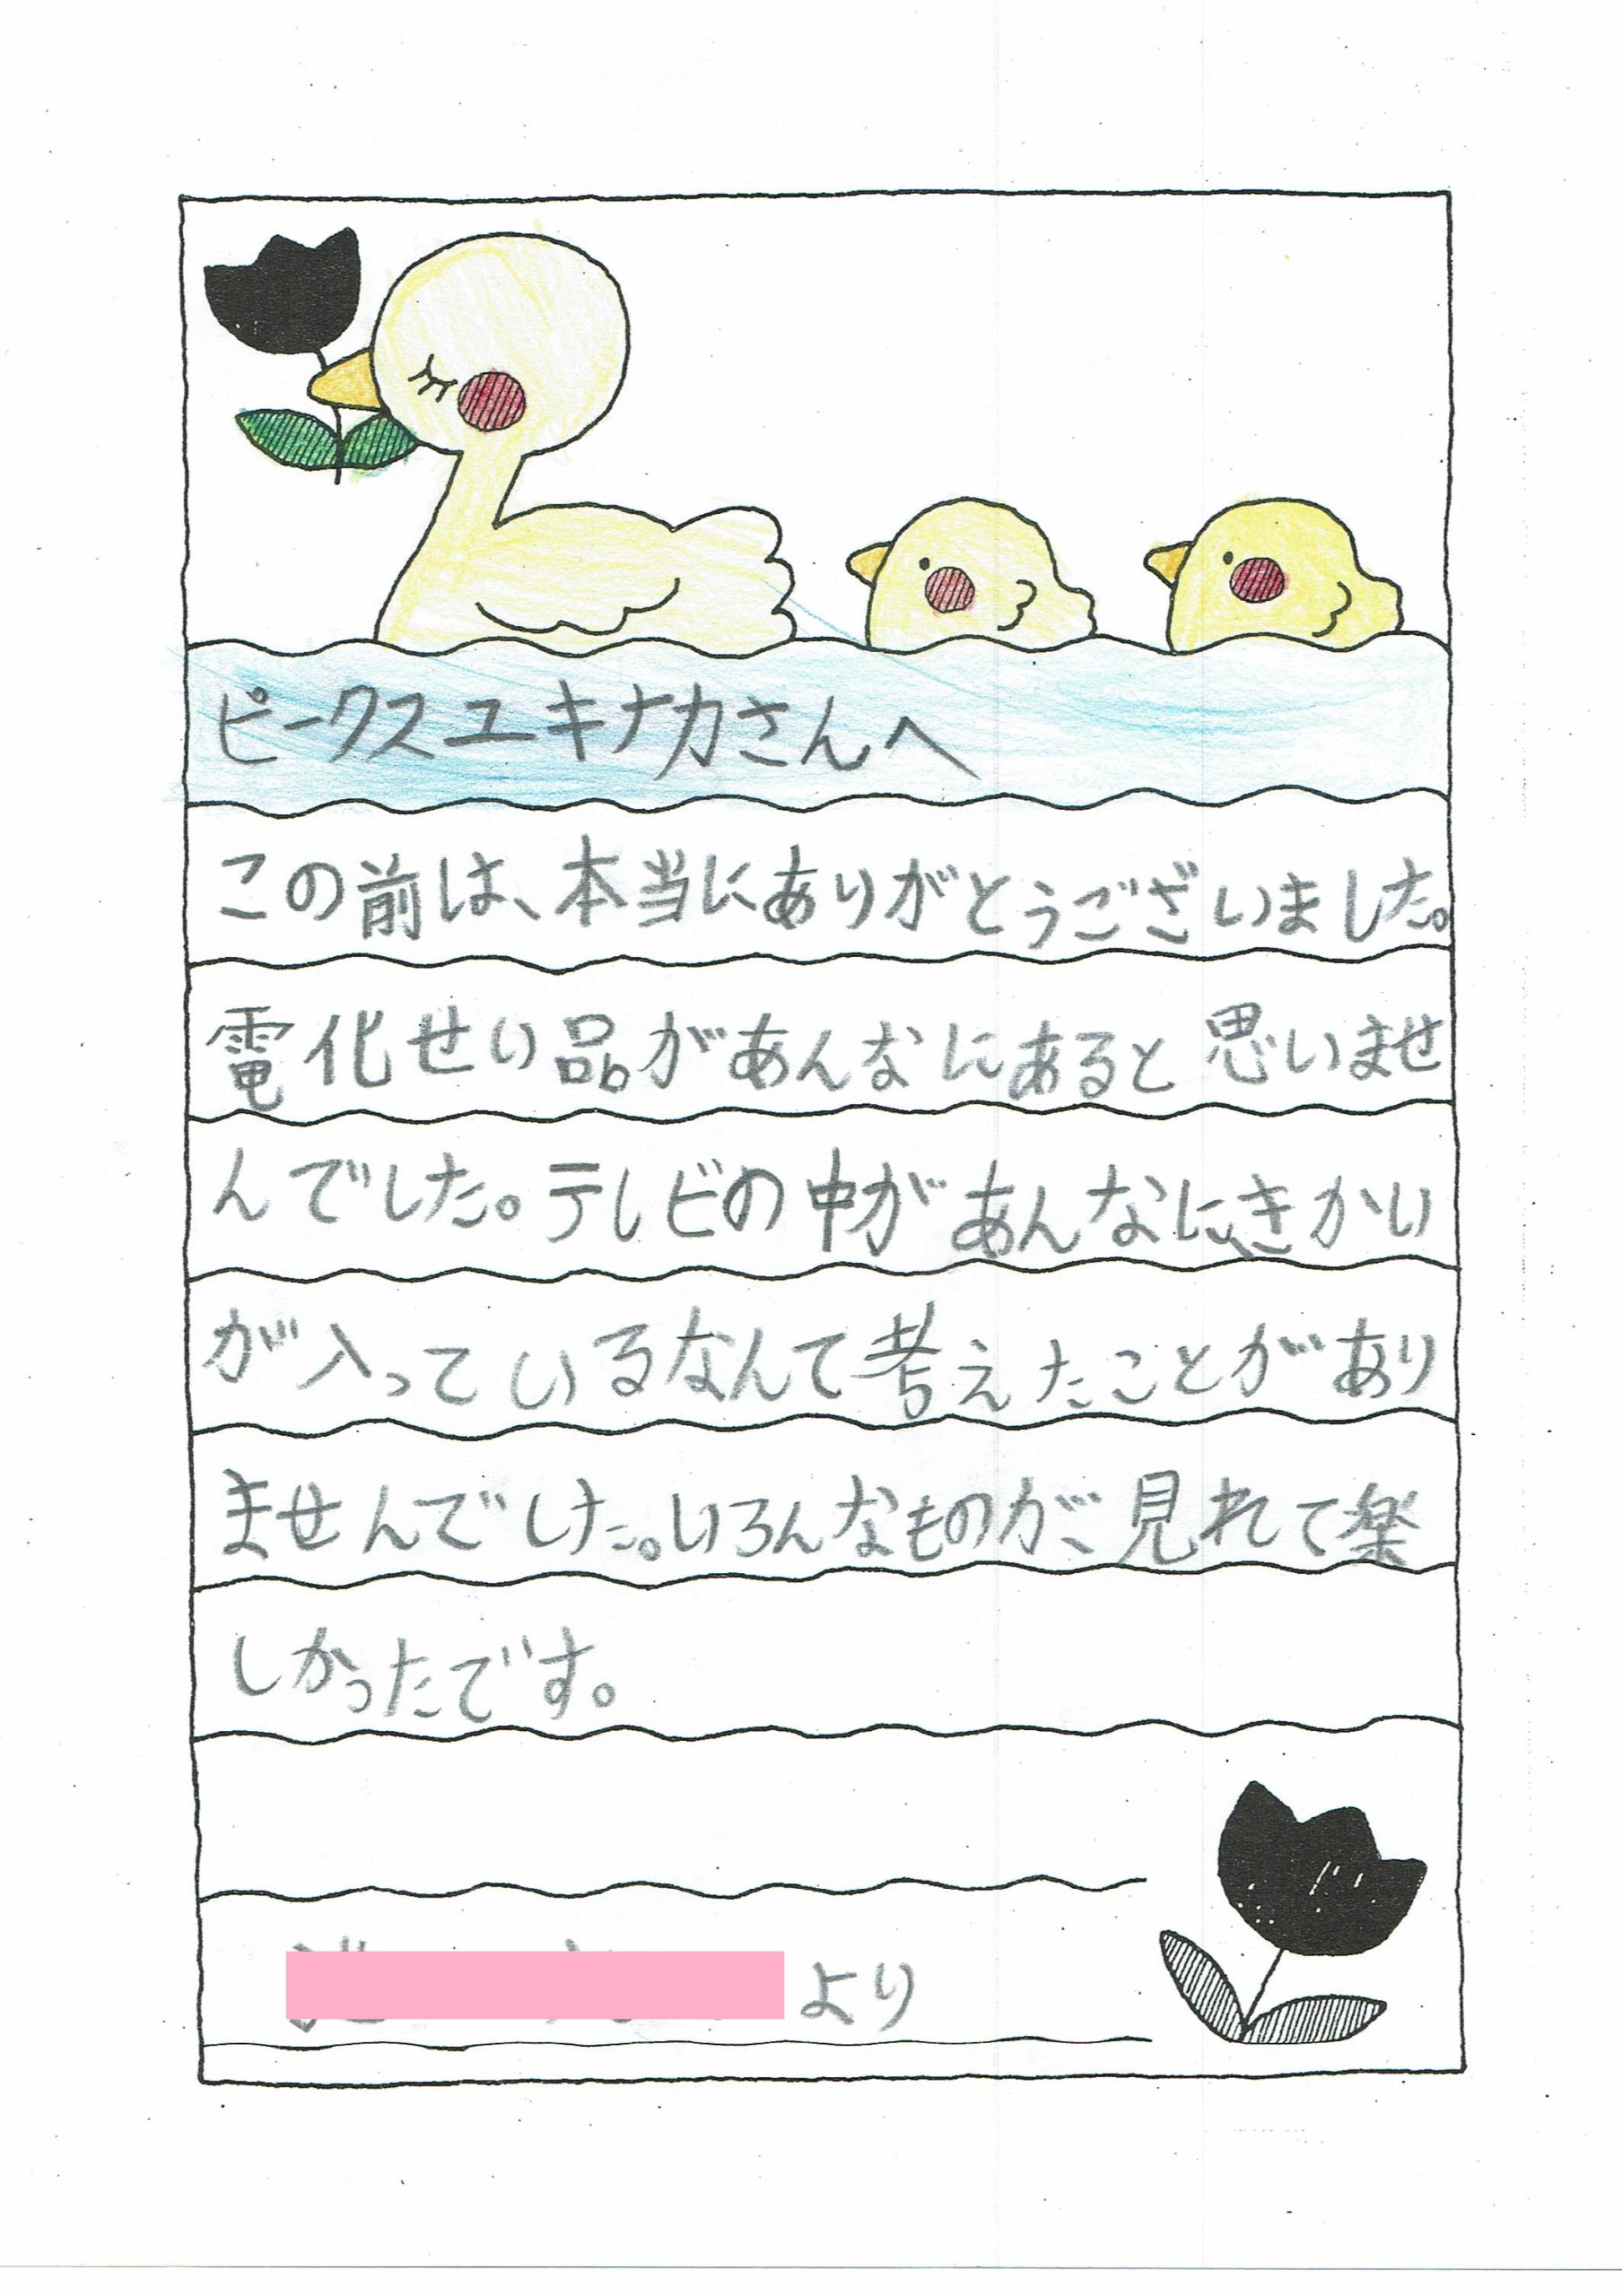 ピークスユキナカさんへ
この前は、本当にありがとうございました。
電化せい品があんなにあると思いませ
んでした。テレビの中があんなに、きかい
が入っているなんて考えたことがあり
ませんでした。いろんなものが見れて楽
しかったです。
より